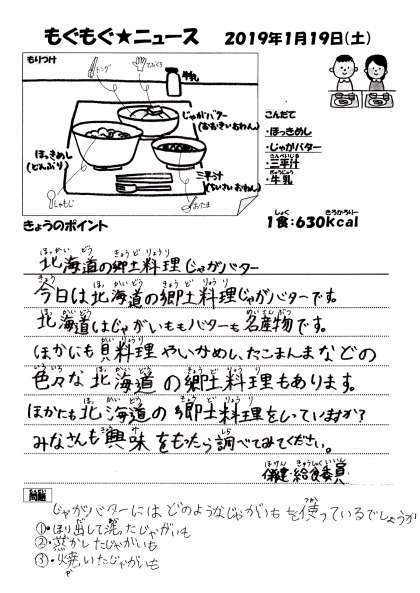 もぐもぐ★ニュース 2019年1月19日(土)
もりつけ
トング
てぶくろ
牛乳
じゃがバター
(おおきいおわん)
ほっきめし
(どんぶり)
三平汁
(ちいさいおわん)
しゃもじ
おたま
こんだて
・ほっきめし
・じゃがバター
・三平汁
・牛乳
きょうのポイント
1食:630kcal
北海道の郷土料理じゃがバター
今日は北海道の郷土料理じゃがバターです。
北海道はじゃがいももバターも名産物です。
ほかにも貝料理やいかめし、たこまんまなどの
色々な北海道の郷土料理もあります。
ほかにも北海道の郷土料理をしっていますか?
みなさんも興味をもったら調べてみてください。
保健・給食委員
問題
じゃがバターにはどのようなじゃがいもを使っているでしょうか
①・ほり出して洗ったじゃがいも
②・蒸かしたじゃがいも
③・焼いたじゃがいも